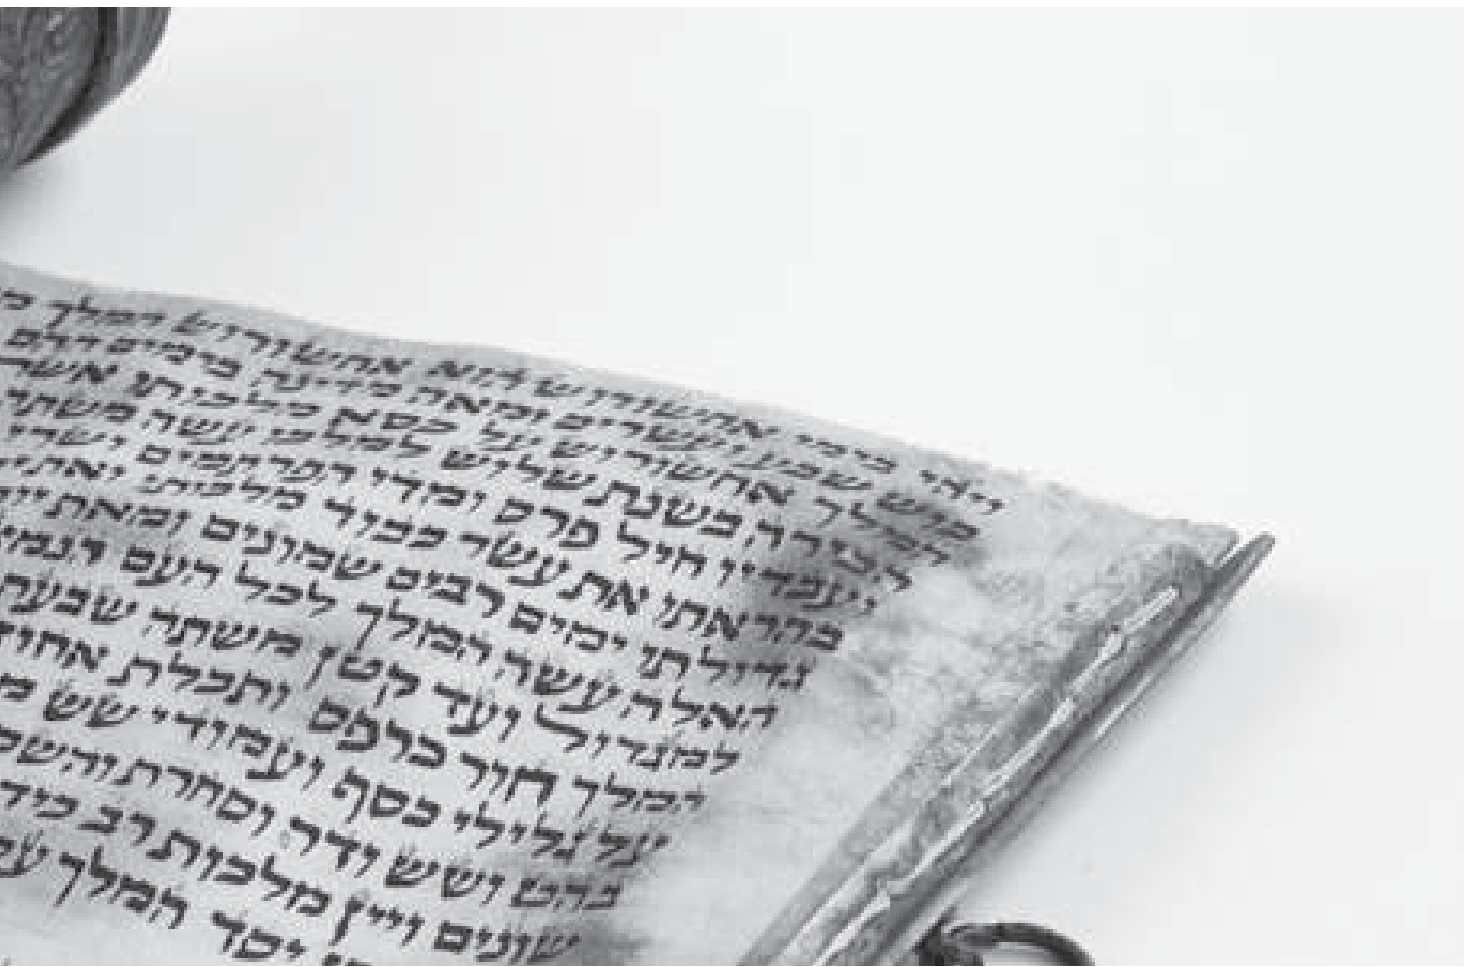 ויהי בימי אחשורוש הוא אחשורוש המלך
כוש שבע ועשרים ומאה מדינה בימים ההם
המלך אחשורוש על כסא מלכותו אשר
הבירה בשנת שלוש למלכו עשה משתה
ועבדיו חיל פרס ומדי הפרתמים ושרי
בהראתו את עשר כבוד מלכותו ואת
גדולתו ימים רבים שמונים ומאת
האלה עשה המלך לכל העם
למגדול ועד קטן משתה שבעת
המלך חור כרפס ותכלת אחוז
על גלילי כסף ועמודי שש
בהט ושש ודר וסחרת
שונים ויין מלכות רב כיד
יסד המלך